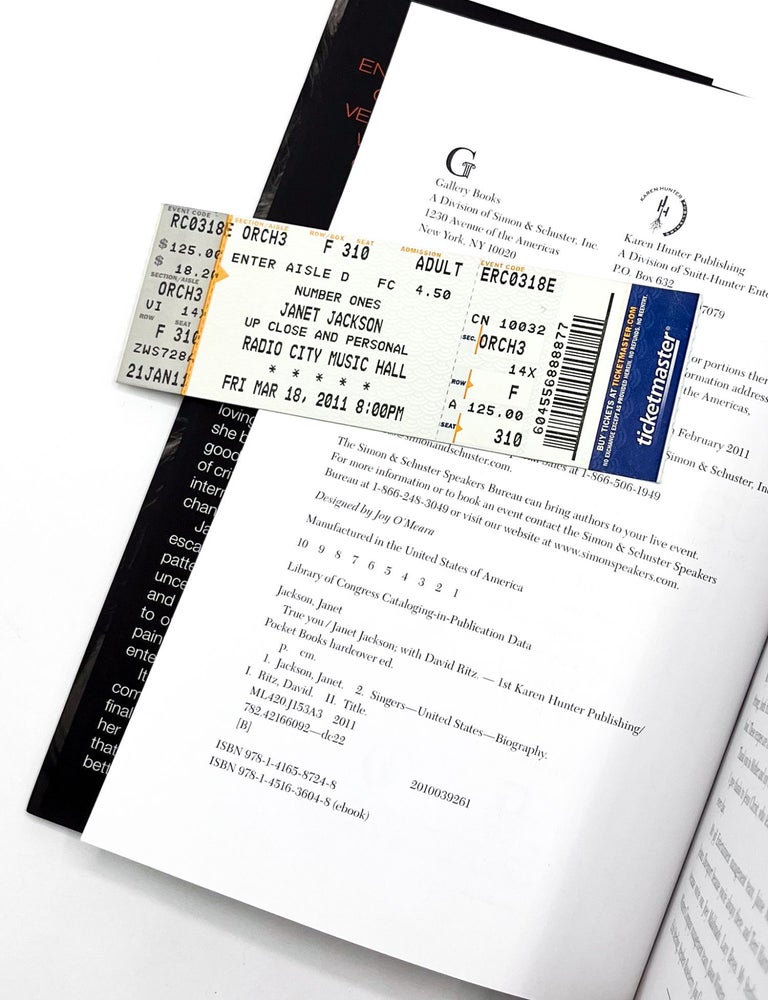 G
Gallery Books
A Division of Simon & Schuster, Inc.
1230 Avenue of the Americas
New York, NY 10020
KAREN HUNTER
H
Karen Hunter Publishing
A Division of Suitt-Hunter Ente
P.O. Box 632
7079
EVENT CODE
RC0318E
$125.00
$ 18.20
SECTION/AISLE
ORCH3
VI 14X
ROW SEAT
F 310
ZWS728A
21JAN11
SECTION/AISLE ROW/BOX SEAT ADMISSION
ORCH3 F 310 ADULT
ENTER AISLE D FC 4.50
NUMBER ONES
JANET JACKSON
UP CLOSE AND PERSONAL
RADIO CITY MUSIC HALL
* * * * *
FRI MAR 18, 2011 8:00PM
EVENT CODE
ERC0318E
CN 10032
SEC. ORCH3
14X
ROW F
A 125.00
SEAT 310
604556888877
BUY TICKETS AT TICKETMASTER.COM
NO EXCHANGE EXCEPT AS PROVIDED HEREIN, NO REFUNDS, NO REENTRY.
ticketmaster®
or portions ther
ormation address
the Americas,
February 2011
Simon & Schuster, Inc
at 1-866-506-1949
simonandschuster.com.
The Simon & Schuster Speakers Bureau can bring authors to your live event.
For more information or to book an event contact the Simon & Schuster Speakers
Bureau at 1-866-248-3049 or visit our website at www.simonspeakers.com.
Designed by Joy O'Meara
Manufactured in the United States of America
10 9 8 7 6 5 4 3 2 1
Library of Congress Cataloging-in-Publication Data
Jackson, Janet
True you / Janet Jackson; with David Ritz. — 1st Karen Hunter Publishing/
Pocket Books hardcover ed.
p. cm.
1. Jackson, Janet. 2. Singers—United States—Biography.
I. Ritz, David. II. Title.
ML420.J153A3 2011
782.42166092—dc22
[B] 2010039261
ISBN 978-1-4165-8724-8
ISBN 978-1-4516-3604-8 (ebook)
EN
VE
loving
she b
good
of cri
inter
chan
Ja
esca
patte
unce
and
to o
pain
ente
It
com
final
her
that
bett